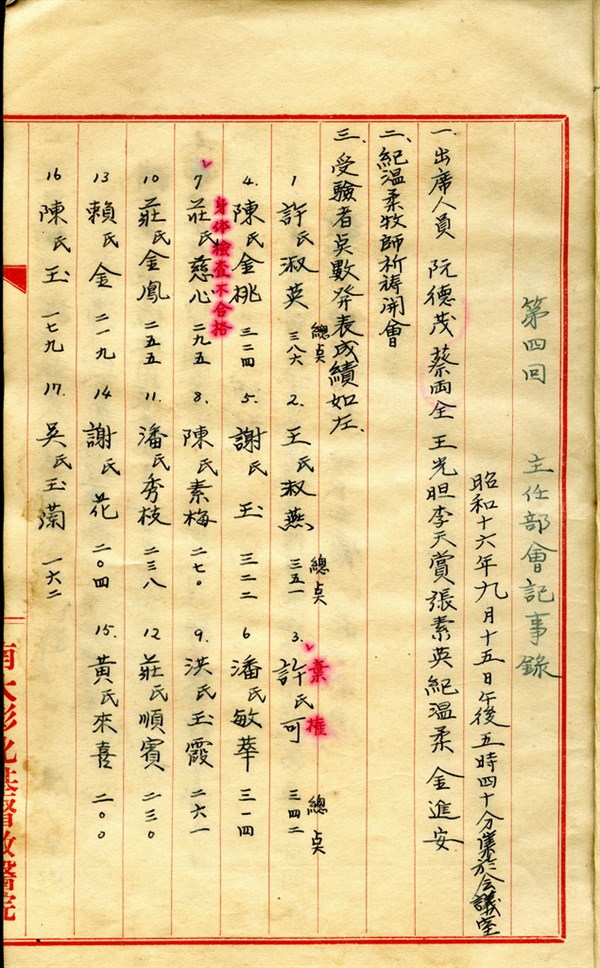 第四回 主任部會記事錄
昭和十六年九月十五日午後五時四十分集於会議室
一、出席人員 阮德茂 蔡雨全 王光昍 李天賞 張素英 紀溫柔 金進安
二、紀溫柔牧師祈禱開會
三、受驗者点數発表成績如左.
總点 總点 棄權 總点
1 許氏淑英 三八六 2. 王氏淑燕 三五一 3. 許氏可 三四二
4. 陳氏金桃 三二四 5. 謝氏玉 三二二 6 潘氏敏華 三一四
身体檢查不合格
7 莊氏慈心 二九五 8. 陳氏素梅 二七〇 9. 洪氏玉霞 二六一
10 莊氏金鳳 二五五 11. 潘氏秀枝 二三八 12 莊氏順賓 二三〇
13 賴氏金 二一九 14 謝氏花 二〇四 15. 黃氏來喜 二〇〇
16 陳氏玉 一七九 17. 吳氏玉蘭 一六二
大彰化基督教醫院